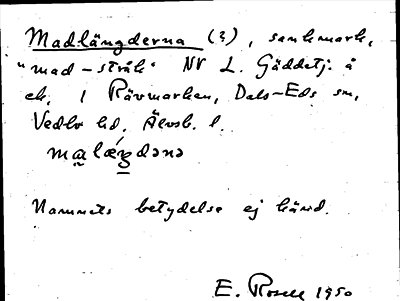 Madlängderna (?), sankmark,
"mad-stråk" NV L. Gäddetj. å
ek. 1 Rävmarken, Dals-Eds sn,
Vedbo hd, Älvsb. l.
Namnets betydelse ej känd.
E. Rosell 1950